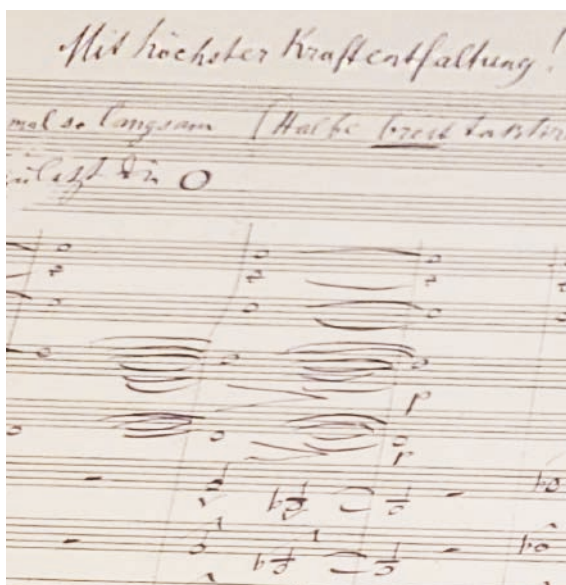 Mit höchster Kraftentfaltung!
mal so langsam (Halbe breit taktir
zuletzt die
p
p